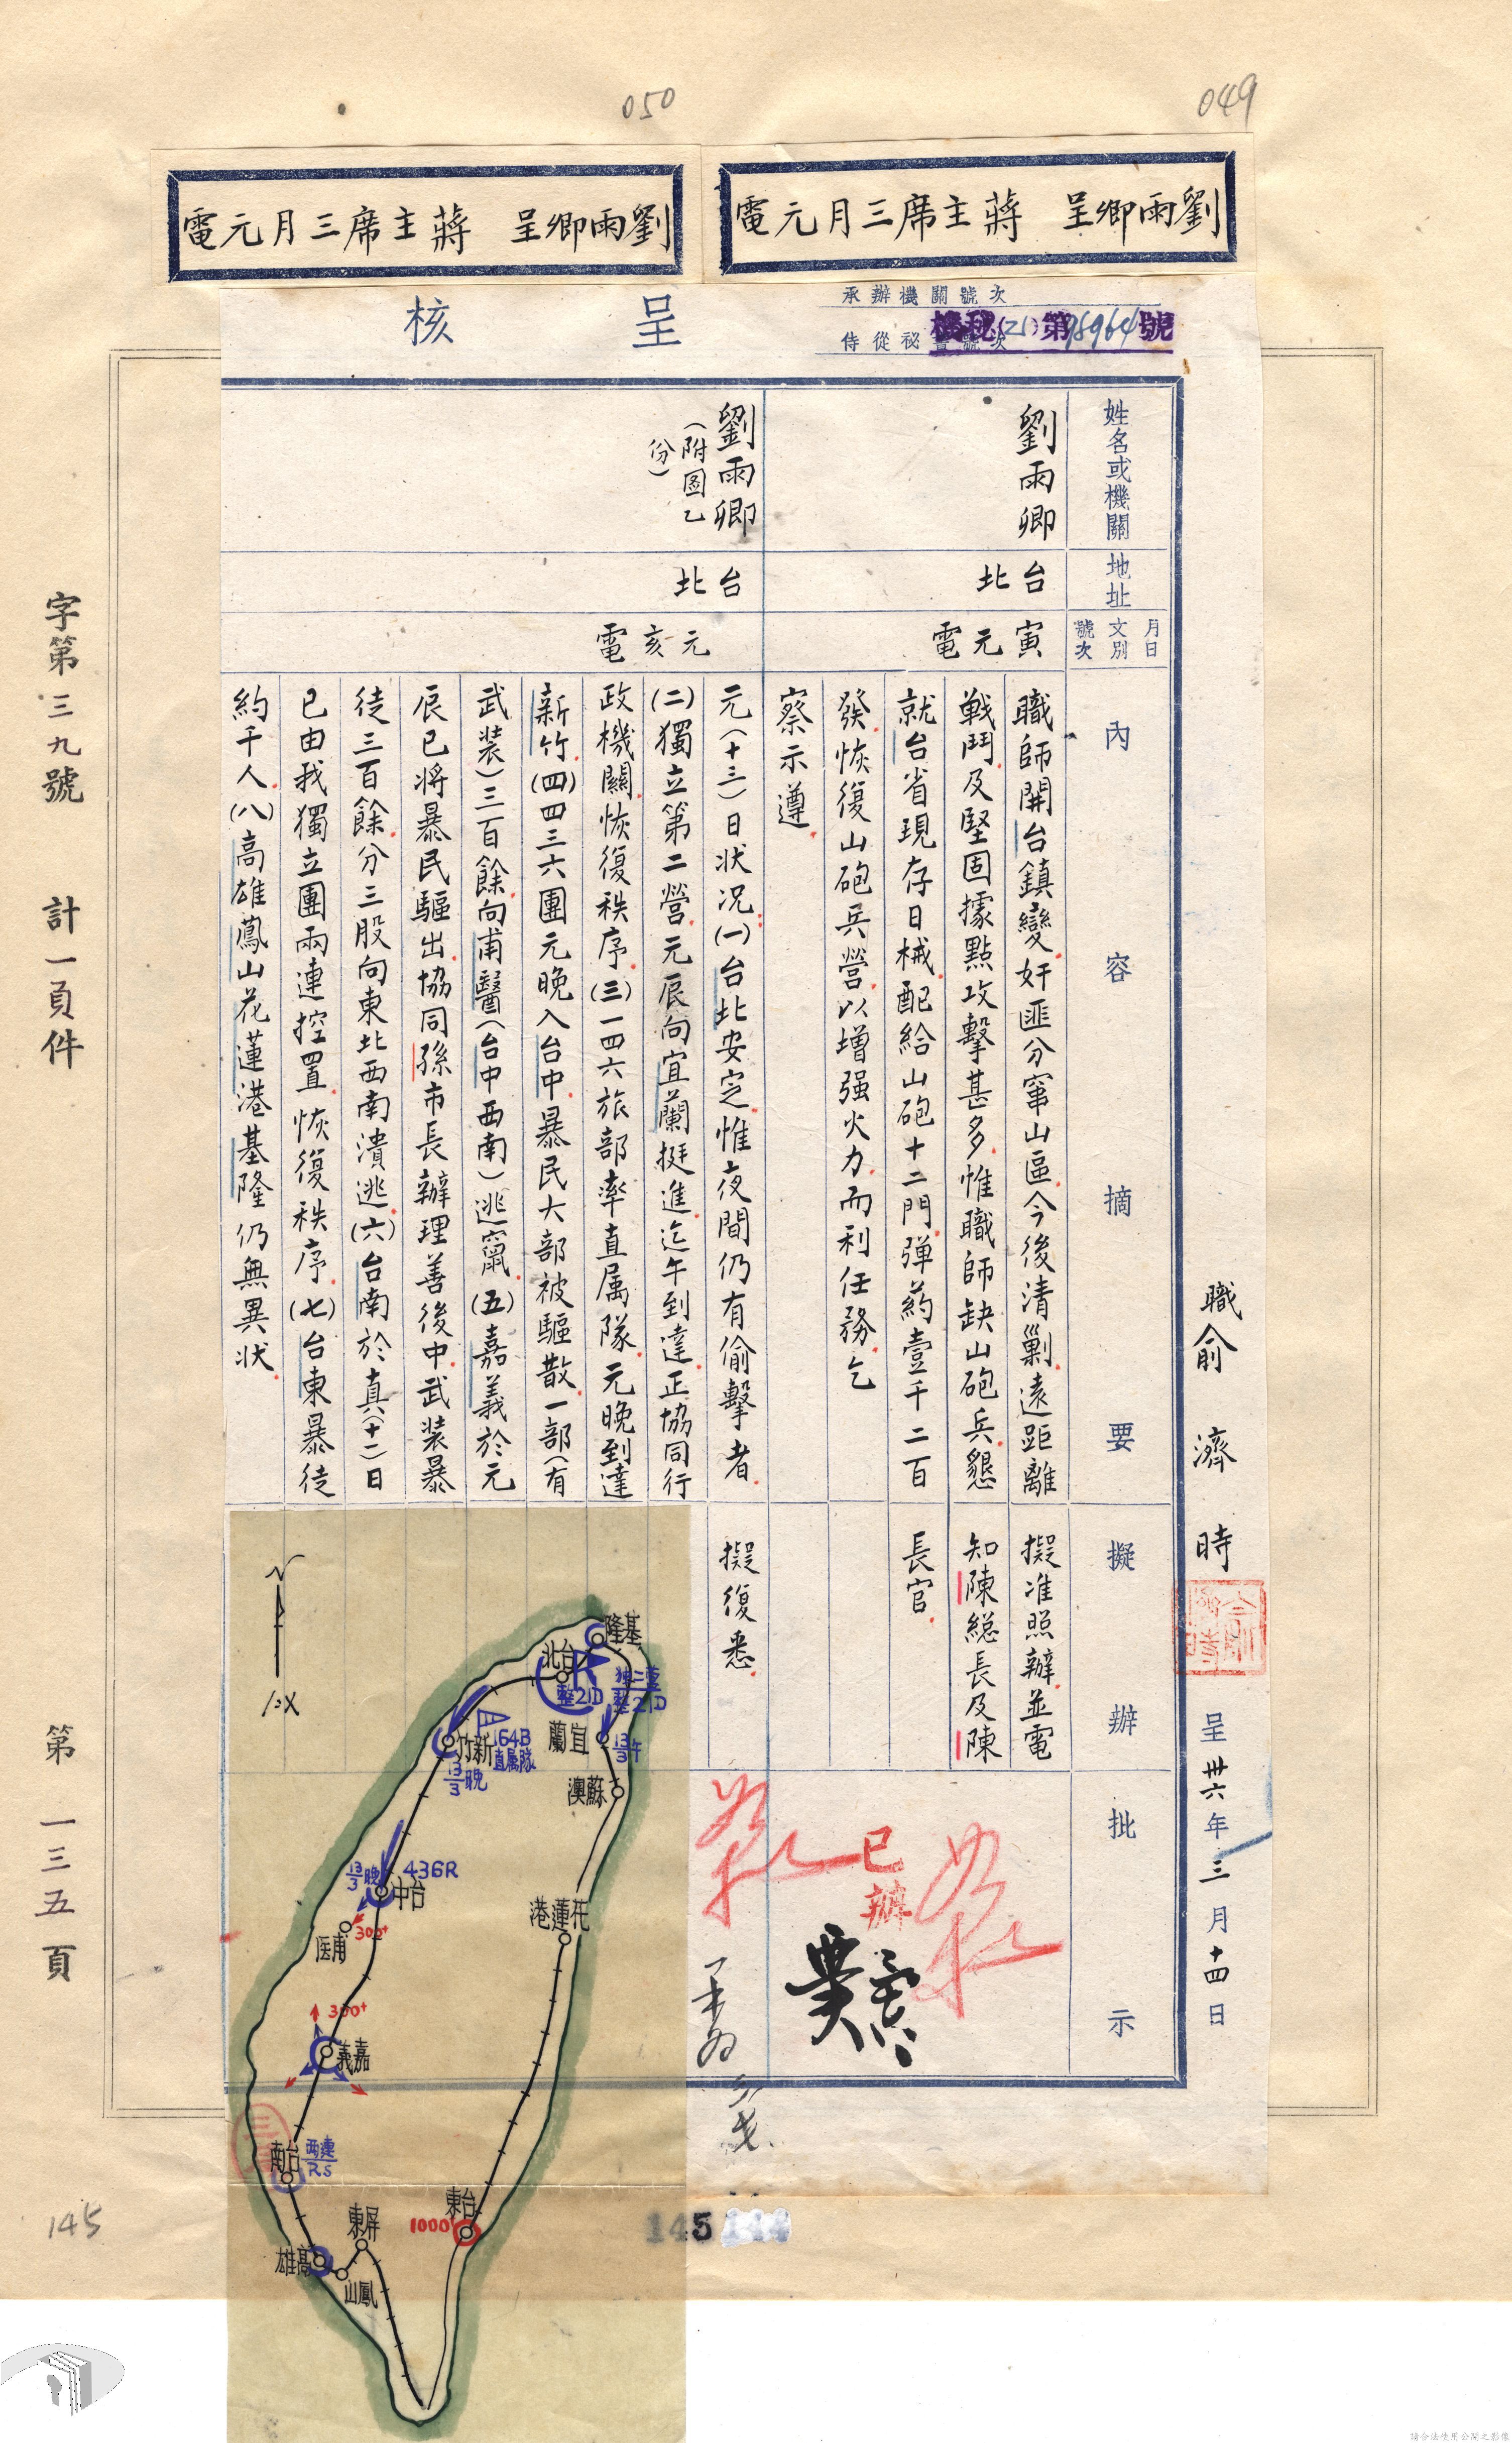 049
050
劉雨卿呈　蔣主席三月元電
劉雨卿呈　蔣主席三月元電
承辦機關號次
侍從祕書號次
機秘(乙)第98964號
呈　核
姓名或機關
地址
月日
文別
號次
內容摘要
擬辦
批示
劉雨卿
台北
寅元電
職師開台鎮變奸匪分窜山區今後清剿遠距離
戰鬥及堅固據點攻擊甚多惟職師缺山砲兵懇
就台省現存日械配給山砲十二門彈葯壹千二百
發恢復山砲兵營以增强火力而利任務乞
察示遵
擬准照辦並電
知陳總長及陳
長官
已辦
劉雨卿
(附圖乙
份)
台北
元亥電
元(十三)日狀況(一)台北安定惟夜間仍有偷擊者
(二)獨立第二營元辰向宜蘭挺進迄午到達正協同行
政機關恢復秩序(三)一四六旅部率直属隊元晚到達
新竹(四)四三六團元晚入台中暴民大部被驅散一部(有
武裝)三百餘向甫醫(台中西南)逃竄(五)嘉義於元
辰已將暴民驅出協同孫市長辦理善後中武装暴
徒三百餘分三股向東北西南潰逃(六)台南於真(十一)日
已由我獨立團兩連控置恢復秩序(七)台東暴徒
約千人(八)高雄鳳山花蓮港基隆仍無異狀
擬復悉
職俞濟時
呈卅六年三月十四日
字第三九號　計一頁件
第一三五頁
145
145
基隆
台北
整21D
独二营
整21D
宜蘭
13/3午
蘇澳
新竹
164B
直属隊
13/3晚
436R
台中
13/3晚
300+
甫医
花蓮港
300+
嘉義
台南
两連
RS
台東
1000+
屏東
高雄
鳳山
N
請合法使用公開之影像